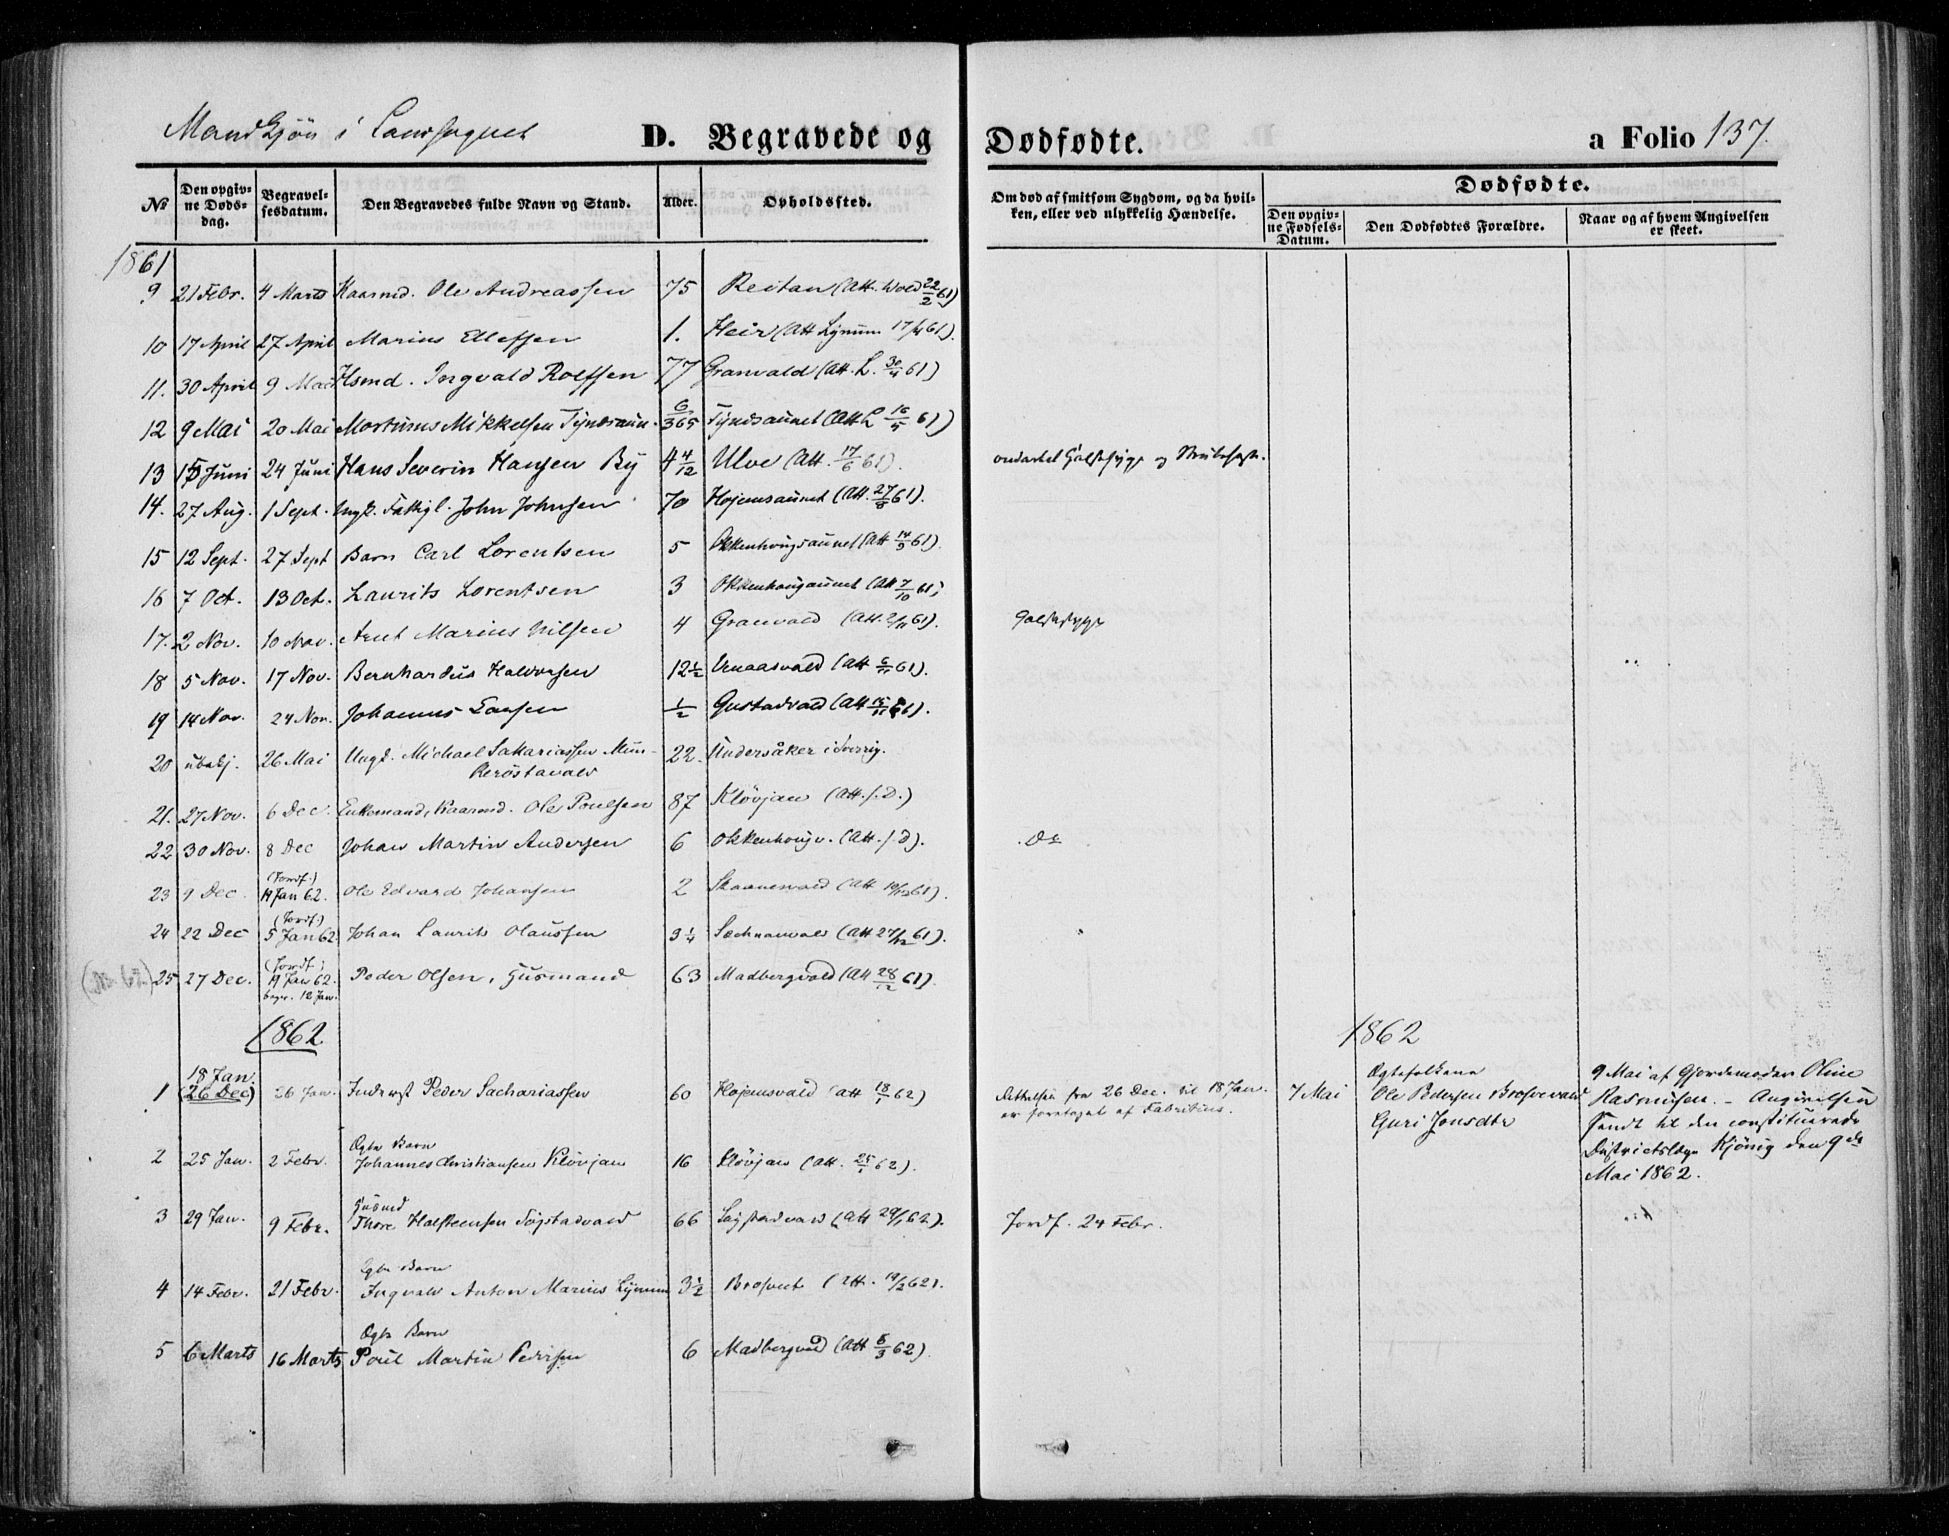 Mandkjön i
D. Begravede og Dødfødte.
a Folio 137.
No
Den opgivne Døds-dag.
Begravelsesdatum.
Den Begravedes fulde Navn og Stand.
Alder.
Opholdssted.
Om død af smitsom Sygdom, og da hvilken, eller ved ulykkelig Hændelse.
Dødfødte.
Den opgivne Fødsels-Datum.
Den Dødfødtes Forældre.
Naar og af hvem Angivelsen er skeet.
1861
9 21 Febr. 4 Marts Kaarmd. Ole Andreassen 75 Reitan (Att. Wold 22/2 61)
10 17 April 27 April Marius Ellefsen 1. Heir (Att Lynum 17/4 61).
11. 30 April 9 Mai Hsmd. Ingvald Rolfsen 77 Granvald (Att. L. 30/4 61)
12 9 Mai 20 Mai Martinus Mikkelsen 6/365 Tyndsaunet (Att L 16/5 61)
13 15 Juni 24 Juni Hans Severin Hansen By 4 4/12 Ulve (Att. 17/6 61). ondartet og
14. 27 Aug. 1 Sept. Fattigl. John Johnsen 70 Hojemsaunet (Att. 27/8 61).
15 12 Sept. 27 Sept Barn Carl Lorentsen 5 Okkenhougsaunet (Att 14/9 61).
16 7 Oct. 13 Oct. Laurits Lorentsen 3 Okkenhougaunet (Att 7/10 61)
17. 2 Nov. 10 Nov. Arnt Marius Nilsen 4 Granvald (Att. 2/11 61).
18 5 Nov. 17 Nov. Bernhardus Halvorsen 12 1/2 (Att 6/11 61).
19 14 Nov. 24 Nov. Johannes Larsen 1/2 Gustadvald (Att 15/11 61).
20 ubekj. 26 Mai Ungk. Michael Sakariassen 22. Undersåker i Sverrig.
21. 27 Nov. 6 Dec. Enkemand, Kaarmd. Ole Poulsen 87 Kløvjan (Att. s. D.)
22 30 Nov. 8 Dec Johan Martin Andersen 6 Okkenhougv. (Att. s. D).
23 9 Dec (Jordf.) 19 Jan 62. Ole Edvard Johansen 2 Skaanesvald (Att 10/12 61).
24 22 Dec (Jordf.) 5 Jan 62 Johan Laurits Olaussen 3 1/4 (Att 27/12 61).
25 27 Dec. (Jordf.) 19 Jan 62. begr. 12 Jan. Peder Olsen, Husmand 63 Madbergvald (Att 28/12 61).
1862
1862
1 18 Jan. (26 Dec) 26 Jan. Inderst Peder Sachariassen 60 Hojemsvald (Att 18/1 62) Rettelsen fra 26 Dec. til 18 Jan. er foretaget af Fabritius.
7 Mai Ægtefolkene Ole Pedersen Guri Jonsdtr
9 Mai af Gjordemoder Oline Rasmusen. - Angivelsen sendt til den constituerede Districtslæge Kjönig den 9de Mai 1862.
2 25 Jan. 2 Febr. Ægte Barn Johannes Christiansen Kløvjan 16 Kløvjan (Att. 25/1 62).
3 29 Jan. 9 Febr. Husmd Thore Halsteensen 66 (Att 29/1 62). Jordf. 24 Febr.
4 14 Febr. 21 Febr. Ægte Barn Ingvald Anton Marius Lynum 3 1/2 (Att. 19/2 62).
5 6 Marts 16 Marts Ægte Barn Poul Martin Pedersen 6 Madbergvald (Att 8/3 62)